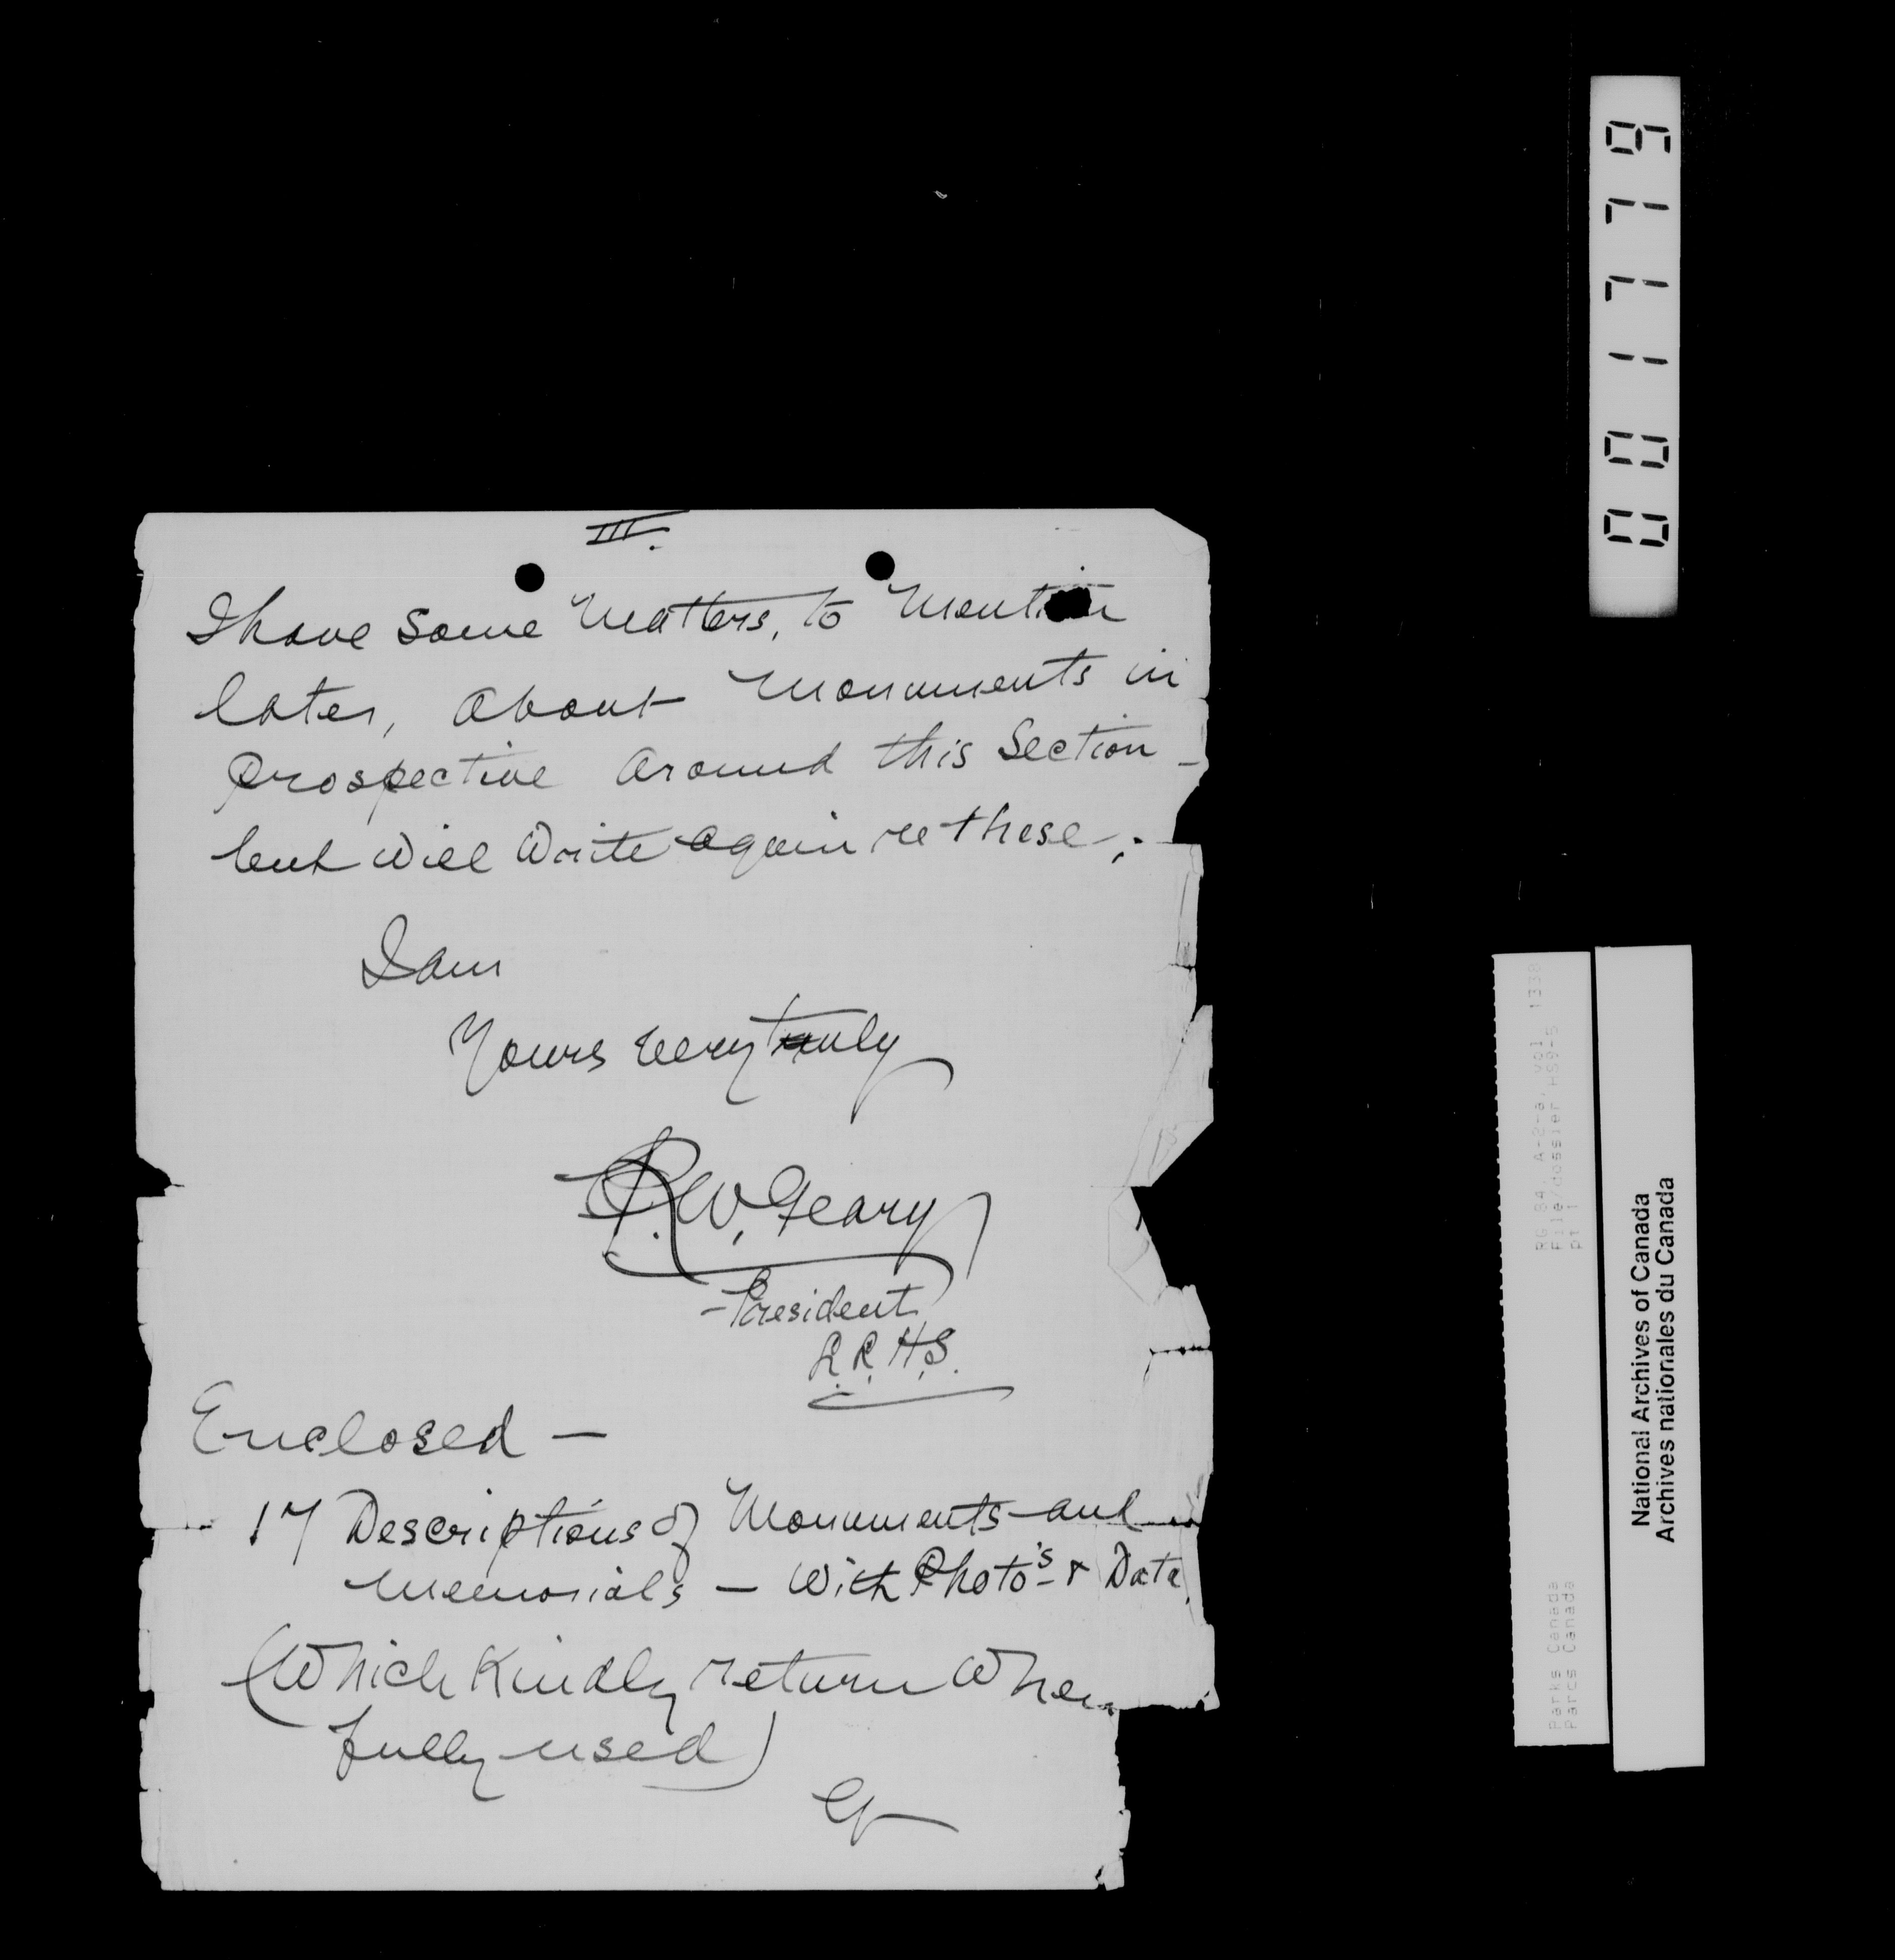 III.
I have some Matters, to Mention
later, About Monuments in
Prospective Around this Section -
but Will Write again re these,-
I am
Yours very truly
R.W. Geary
- President
L.L.H.S.
Enclosed -
17 Descriptions of Monuments and
Memorials - With Photo's & Data
(Which Kindly return When
fully used)
G
001779
RG 84, A-2-a, Vol. 1338
File/dossier HS9-5
pt 1
Parks Canada
Parcs Canada
National Archives of Canada
Archives nationales du Canada